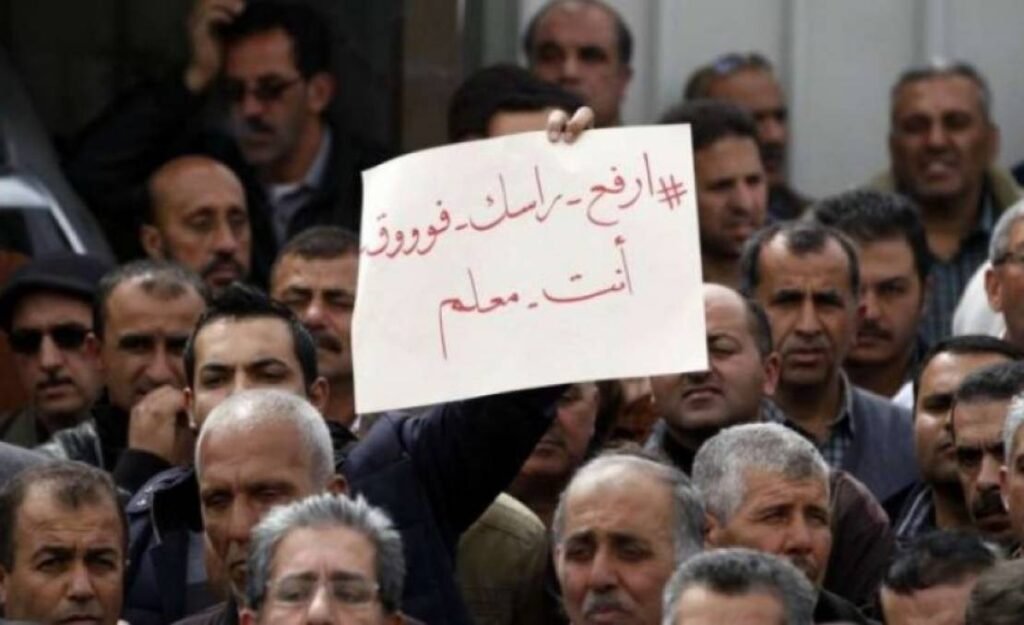 #ارفع_راسك_فوووق
أنت_معلم